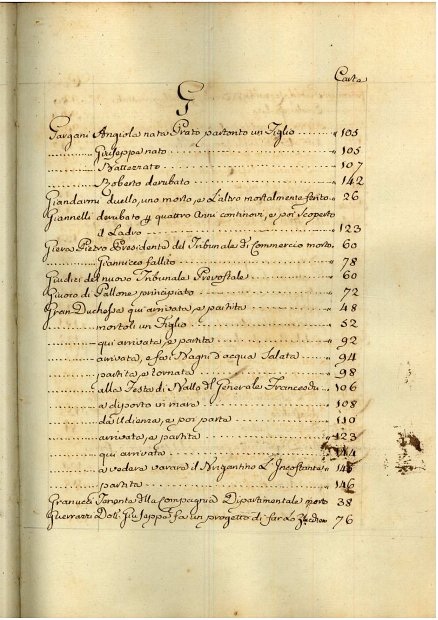 Carte
G
Gargani Angiola nata Prato partorito un Figlio 105
Giuseppe nato 105
Battezzato 107
Roberto derubato 142
Giandarmi duello, uno morto, e L'altro mortalmente ferito 26
Giannelli derubato p quattro Anni continovi, e poi Scoperto
il Ladro 123
Giera Pietro Presidente del Tribunale di Commercio morto 60
Giannico fallito 78
Giudici del nuovo Tribunale Prevostale 60
Giuoco di Pallone principiato 72
Gran Duchessa qui arrivata, e partita 48
mortoli un Figlio 52
qui arrivata, e partita 92
arrivata, e fa i Bagni d'acqua Salata 94
partita, e tornata 98
alla Festa di Ballo dl Generale Francesch 106
a diporto in mare 108
dà Udienza, e poi parte 110
arrivata, e partita 123
qui arrivata 144
a vedere varare il Brigantino L'Incostante 145
partita 146
Tenente dlla Compagnia Dipartimentale morto 38
Guerrazzi Dott. Giuseppe fa un progetto di far 76